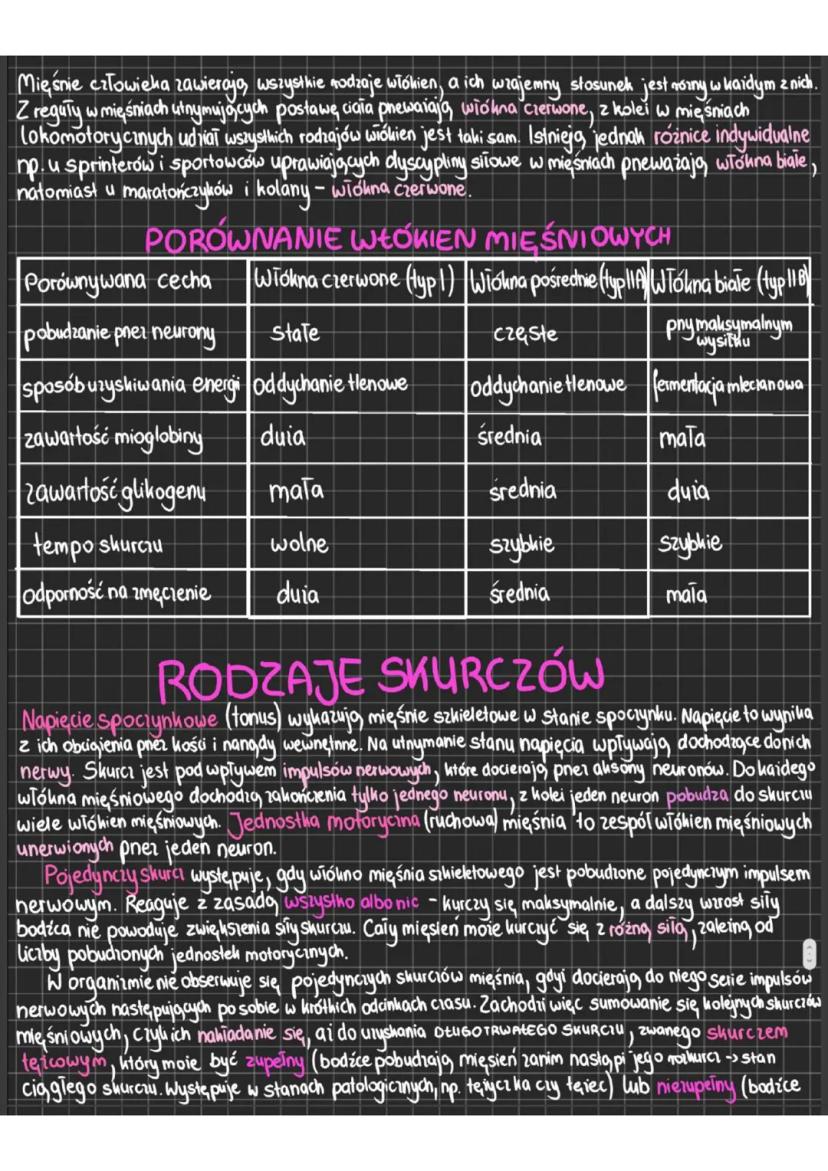 Mięśnie człowieka zawierają wszystkie rodzaje włókien, a ich wzajemny stosunek jest różny w każdym z nich.
Z reguły w mięśniach utrzymujących postawę ciała przeważają włókna czerwone, z kolei w mięśniach
lokomotorycznych udział wszystkich rodzajów włókien jest taki sam. Istnieją jednak różnice indywidualne
np. u sprinterów i sportowców uprawiających dyscypliny siłowe w mięśniach przeważają włókna białe,
natomiast u maratończyków i kolarzy – włókna czerwone.
PORÓWNANIE WŁÓKIEN MIĘŚNIOWYCH
Porównywana cecha Włókna czerwone (typ I) Włókna pośrednie (typ IIA) Włókna białe (typ IIB)
pobudzanie przez neurony stałe częste przy maksymalnym wysiłku
sposób uzyskiwania energii oddychanie tlenowe oddychanie tlenowe fermentacja mleczanowa
zawartość mioglobiny duża średnia mała
zawartość glikogenu mała średnia duża
tempo skurczu wolne szybkie szybkie
odporność na zmęczenie duża średnia mała
RODZAJE SKURCZÓW
Napięcie spoczynkowe (tonus) wykazują mięśnie szkieletowe w stanie spoczynku. Napięcie to wynika
z ich obciążenia przez kości i narządy wewnętrzne. Na utrzymanie stanu napięcia wpływają dochodzące do nich
nerwy. Skurcz jest pod wpływem impulsów nerwowych, które docierają przez aksony neuronów. Do każdego
włókna mięśniowego dochodzą zakończenia tylko jednego neuronu, z kolei jeden neuron pobudza do skurczu
wiele włókien mięśniowych. Jednostka motoryczna (ruchowa) mięśnia to zespół włókien mięśniowych
unerwionych przez jeden neuron.
Pojedynczy skurcz występuje, gdy włókno mięśnia szkieletowego jest pobudzone pojedynczym impulsem
nerwowym. Reaguje z zasadą wszystko albo nic - kurczy się maksymalnie, a dalszy wzrost siły
bodźca nie powoduje zwiększenia siły skurczu. Cały mięsień może kurczyć się z różną siłą, zależną od
liczby pobudzonych jednostek motorycznych.
W organizmie nie obserwuje się pojedynczych skurczów mięśnia, gdyż docierają do niego serie impulsów
nerwowych następujących po sobie w krótkich odcinkach czasu. Zachodzi więc sumowanie się kolejnych skurczów
mięśniowych, czyli ich nakładanie się, aż do uzyskania DŁUGOTRWAŁEGO SKURCZU, zwanego skurczem
tężcowym, który może być zupełny (bodźce pobudzają mięsień zanim nastąpi jego rozkurcz -> stan
ciągłego skurczu. Występuje w stanach patologicznych, np. tężyczka czy tężec) lub niezupełny (bodźce